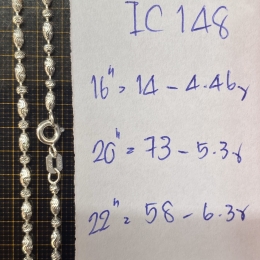 IC 148
16" = 14 - 4.46g
20" = 73 - 5.3g
22" = 58 - 6.3g